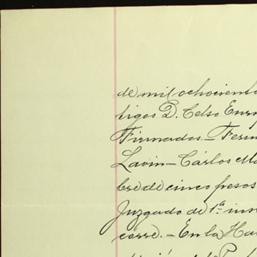 de mil ochocient
tigos D. Celso Enri
Firmados - Fern
Lavin - Cárlos M
bre de cinco pesos
Juzgado de 1ª ins
corre. - En la Ha